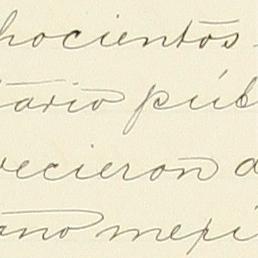 hocientos
tario púb
recieron d
ano meji